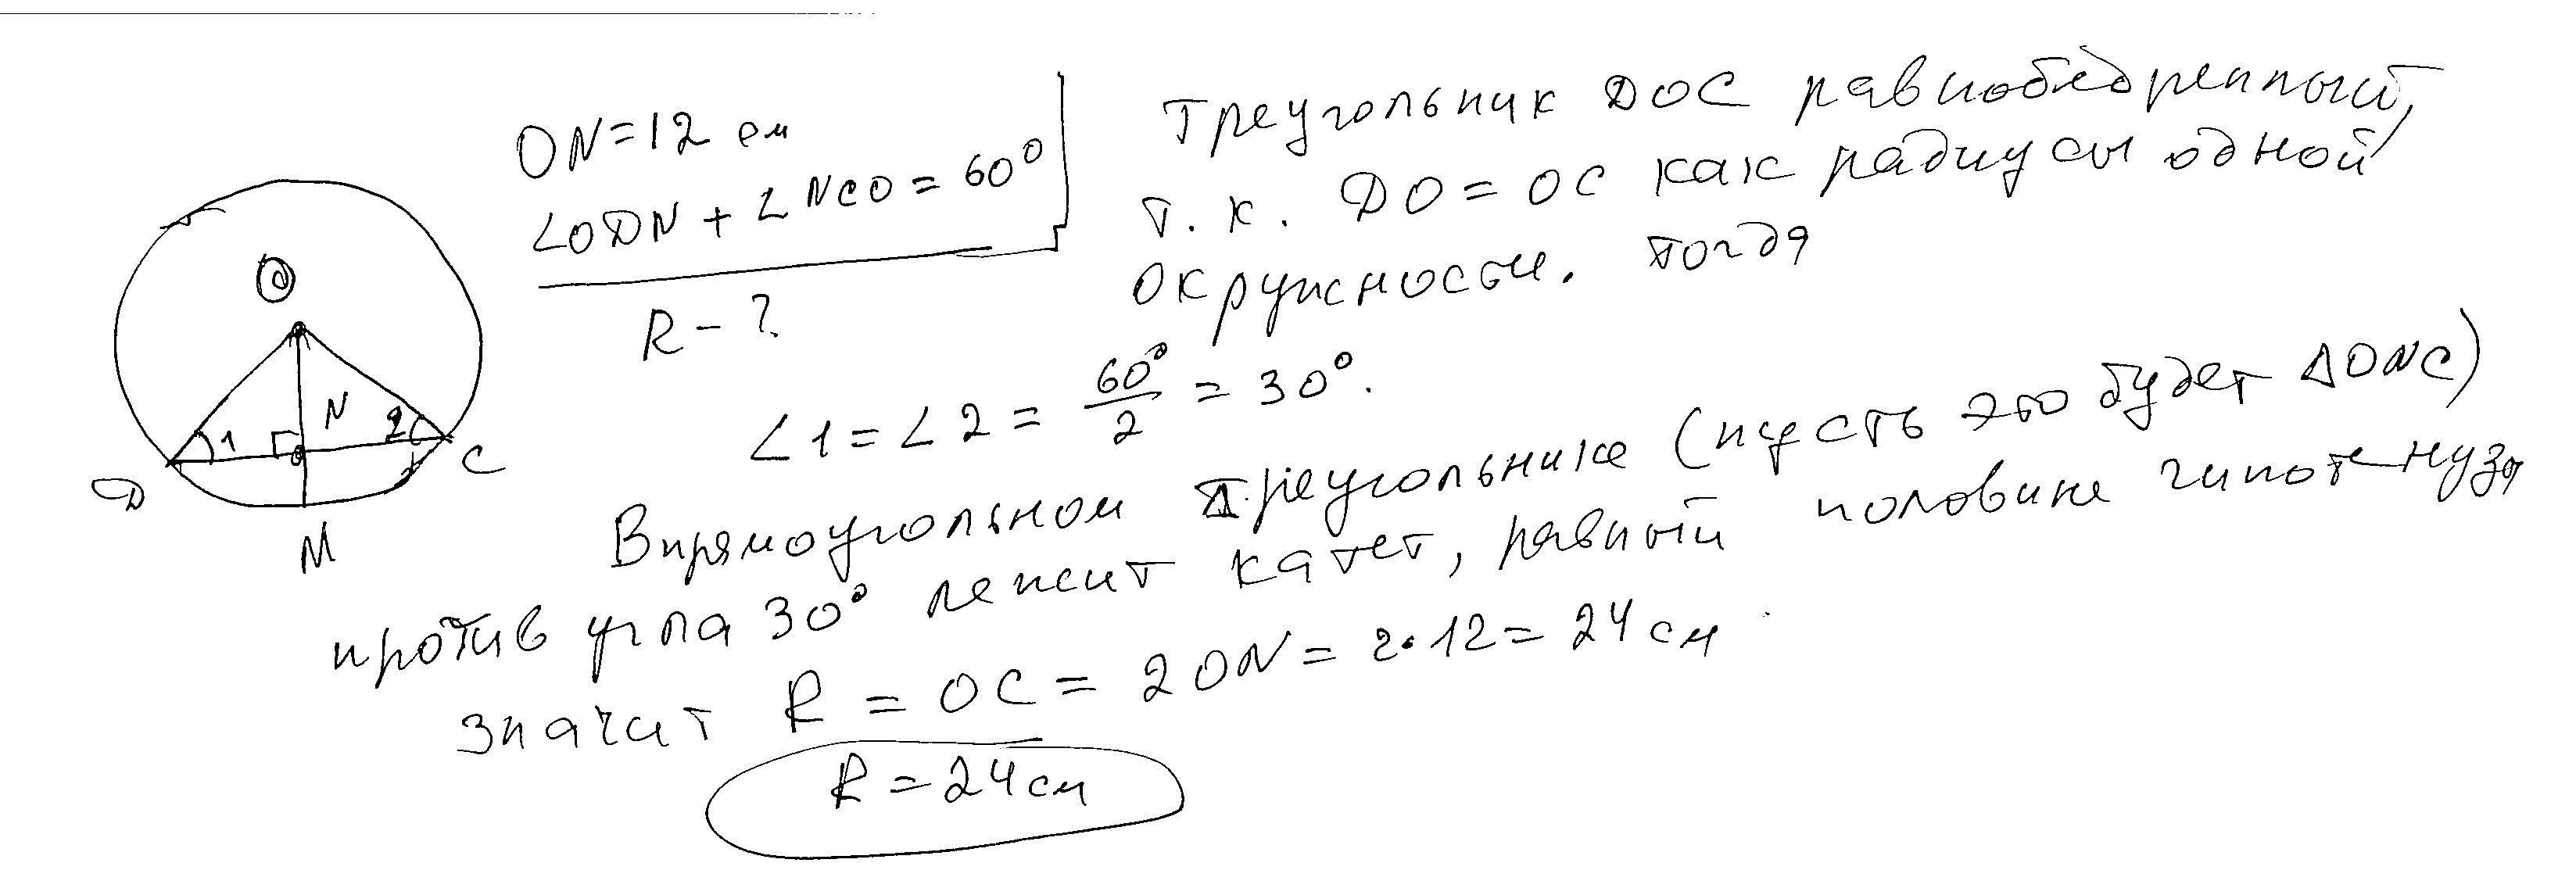 ON=12 см
∠ODN + ∠NCO = 60°
R - ?
O
N
1
2
D
C
M
Треугольник DOC равнобедренный,
т.к. DO = OC как радиусы одной
окружности. Тогда
∠1 = ∠2 = 60°/2 = 30°.
В прямоугольном треугольнике (пусть это будет ΔONC)
против угла 30° лежит катет, равный половине гипотенузы
значит R = OC = 2ON = 2·12 = 24 см
R = 24 см